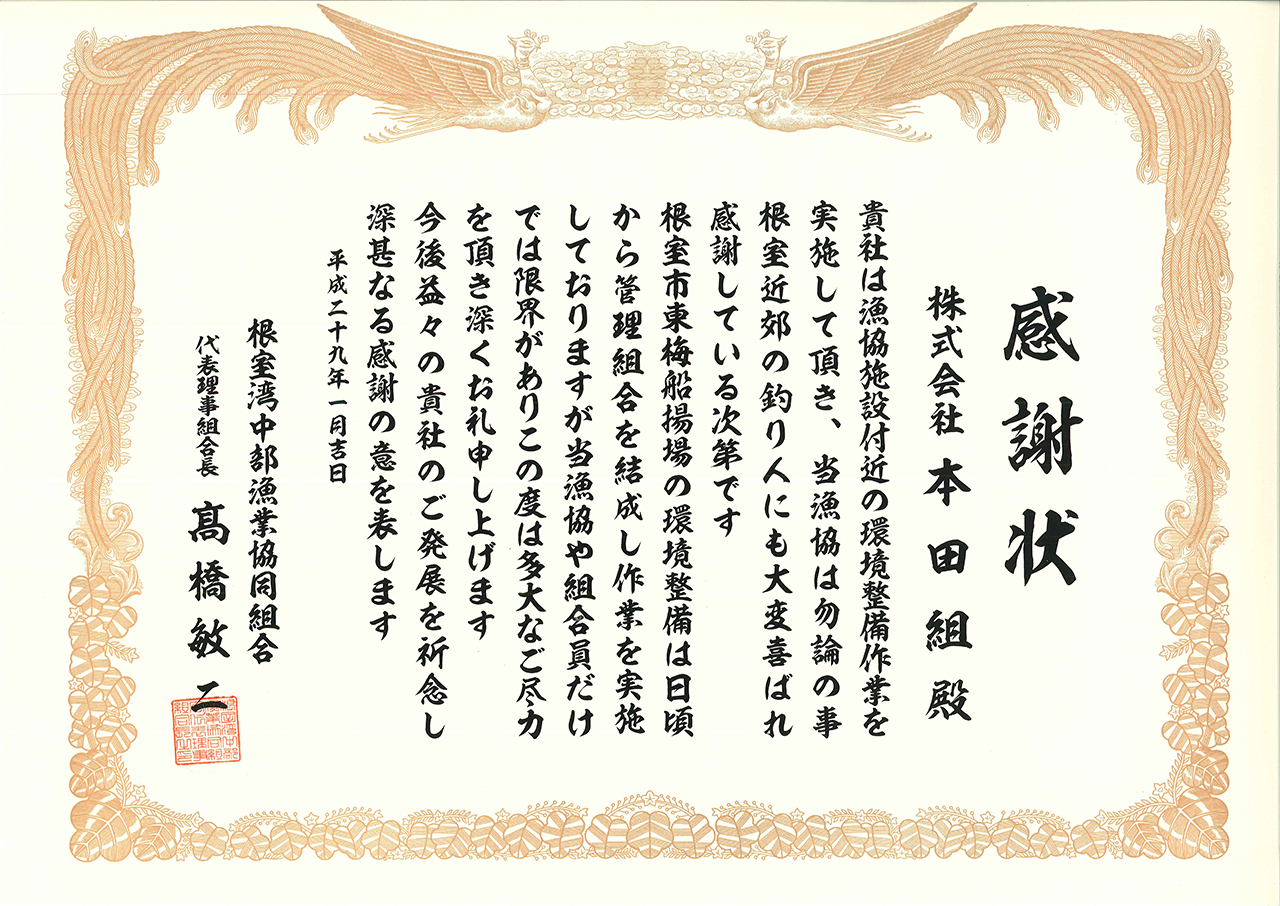 感謝状
株式会社 本田組 殿
貴社は漁協施設付近の環境整備作業を
実施して頂き、当漁協は勿論の事
根室近郊の釣り人にも大変喜ばれ
感謝している次第です
根室市東梅船揚場の環境整備は日頃
から管理組合を結成し作業を実施
しておりますが当漁協や組合員だけ
では限界がありこの度は多大なご尽力
を頂き深くお礼申し上げます
今後益々の貴社のご発展を祈念し
深甚なる感謝の意を表します
平成二十九年一月吉日
根室湾中部漁業協同組合
代表理事組合長 髙橋敏二